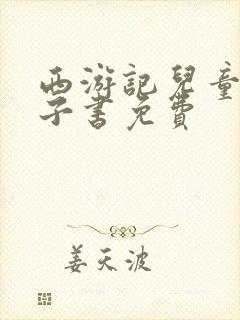 西游記兒童
子書免費
姜天波